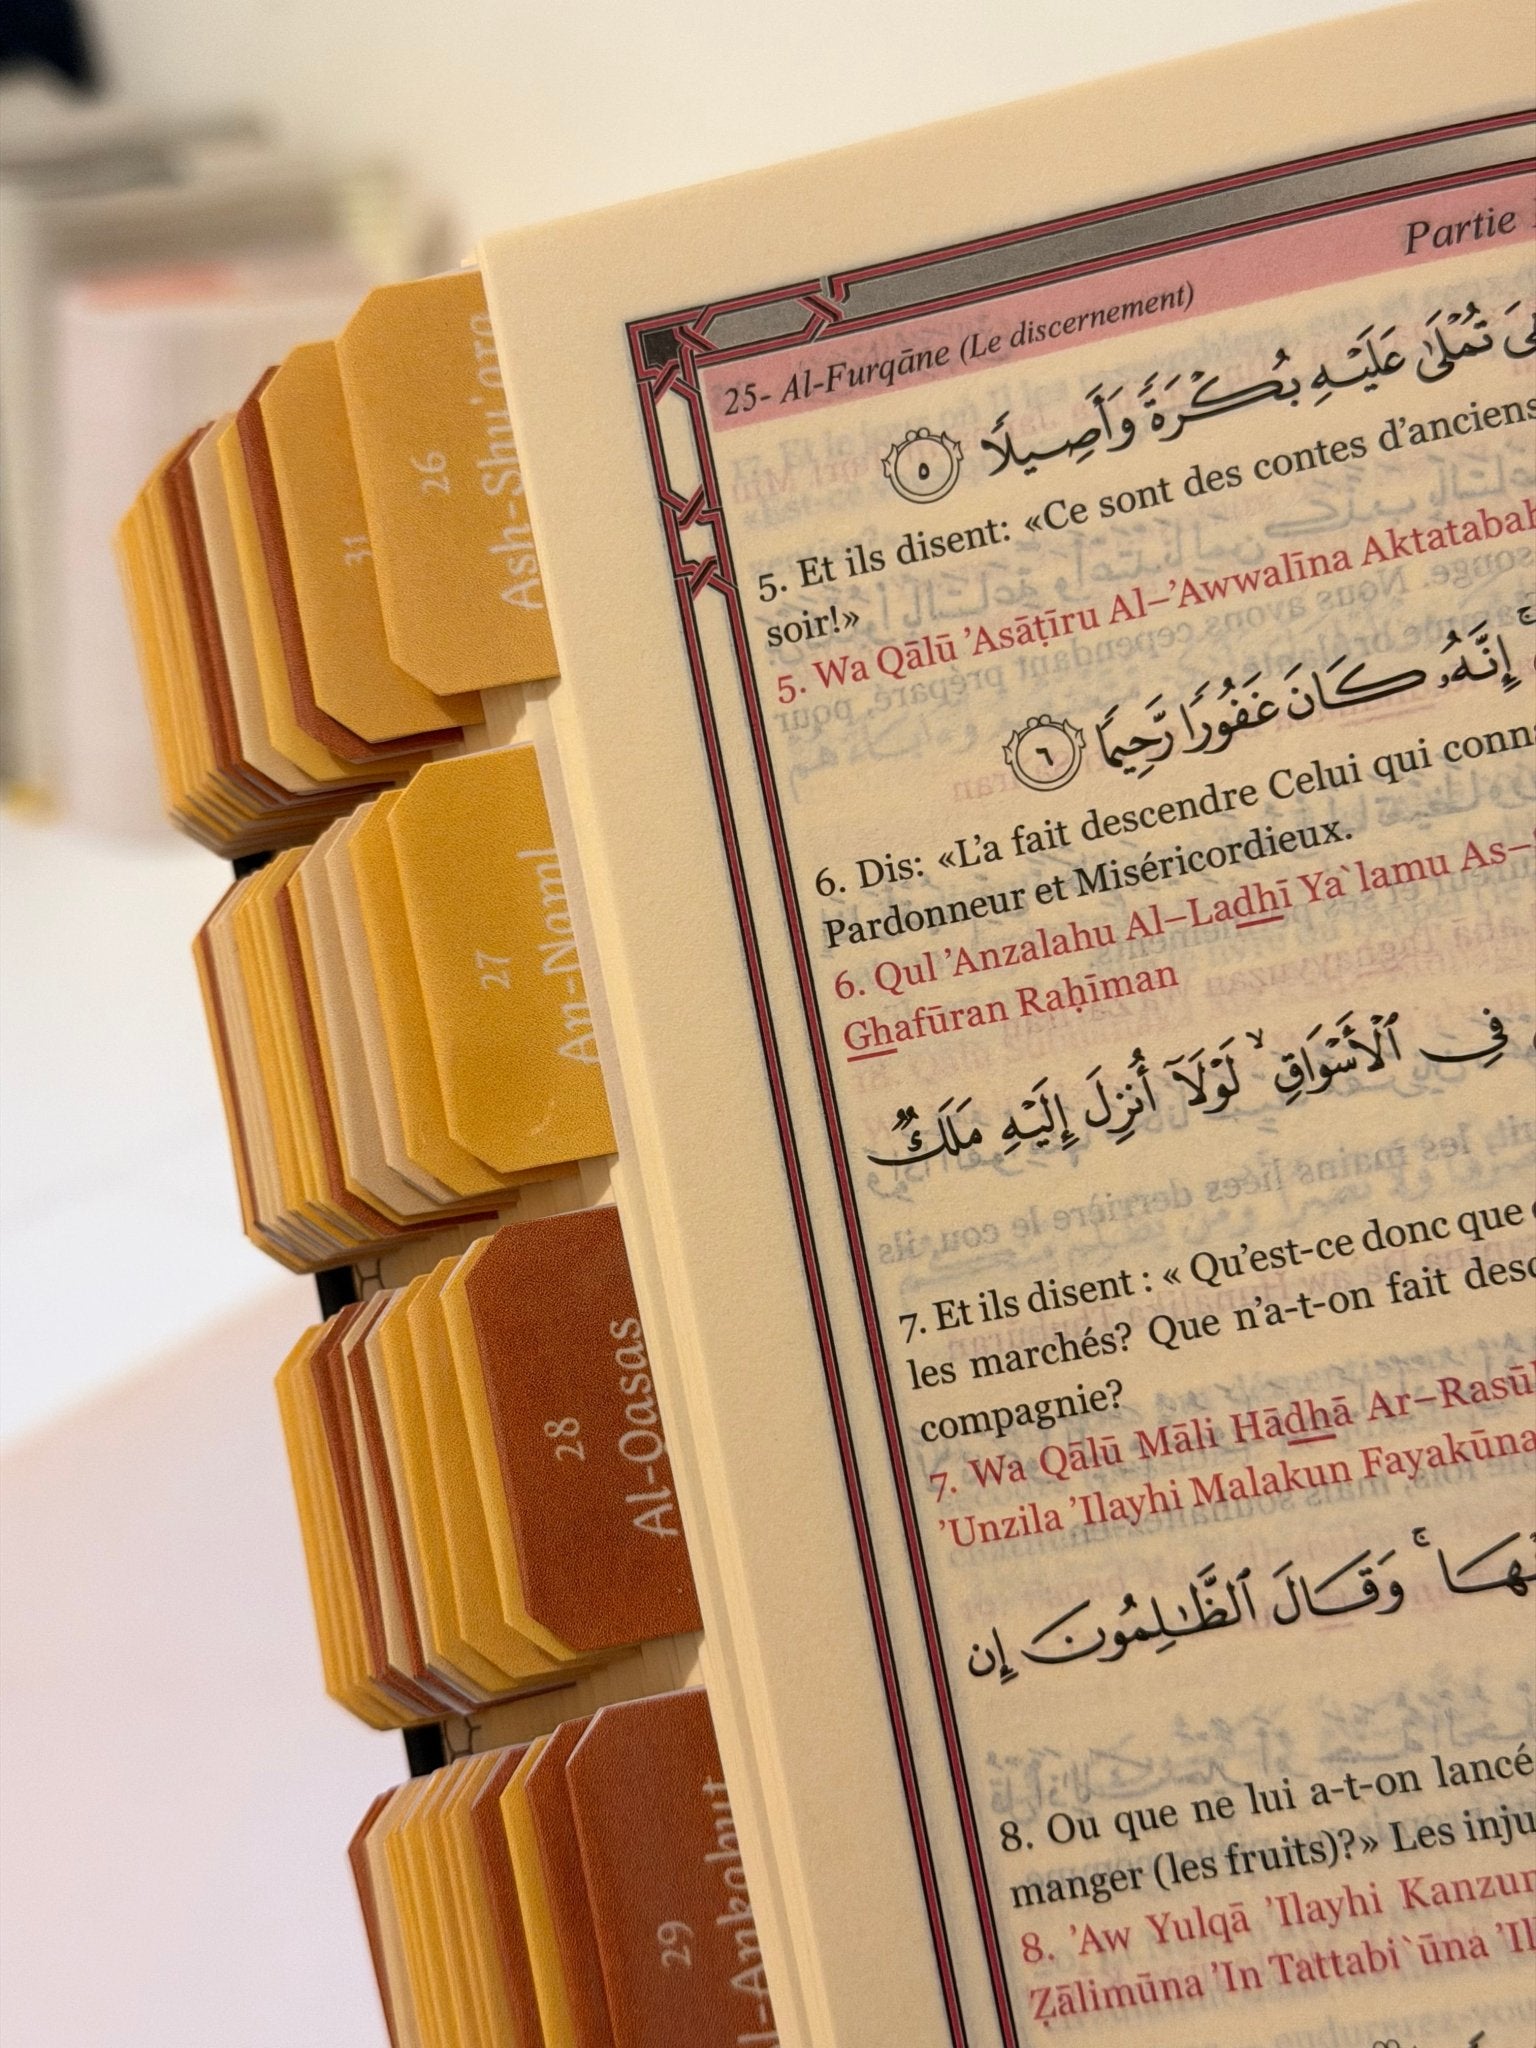 26
Ash-Shu'ara
31
27
An-Naml
28
Al-Qasas
29
25- Al-Furqāne (Le discernement)
Partie
تُمْلَىٰ عَلَيْهِ بُكْرَةً وَأَصِيلًا ٥
5. Et ils disent: «Ce sont des contes d'anciens
soir!»
5. Wa Qālū 'Asāṭīru Al–'Awwalīna Aktatabah
إِنَّهُۥ كَانَ غَفُورًا رَّحِيمًا ٦
6. Dis: «L'a fait descendre Celui qui conn
Pardonneur et Miséricordieux.
6. Qul 'Anzalahu Al–Ladhī Ya`lamu As–
Ghafūran Raḥīman
فِى ٱلْأَسْوَاقِ ۙ لَوْلَآ أُنزِلَ إِلَيْهِ مَلَكٌ
7. Et ils disent : « Qu'est-ce donc que
les marchés? Que n'a-t-on fait desc
compagnie?
7. Wa Qālū Māli Hādhā Ar–Rasūl
'Unzila 'Ilayhi Malakun Fayakūna
وَقَالَ ٱلظَّـٰلِمُونَ إِن
8. Ou que ne lui a-t-on lancé
manger (les fruits)?» Les inju
8. 'Aw Yulqā 'Ilayhi Kanzun
Ẓālimūna 'In Tattabi`ūna 'Il